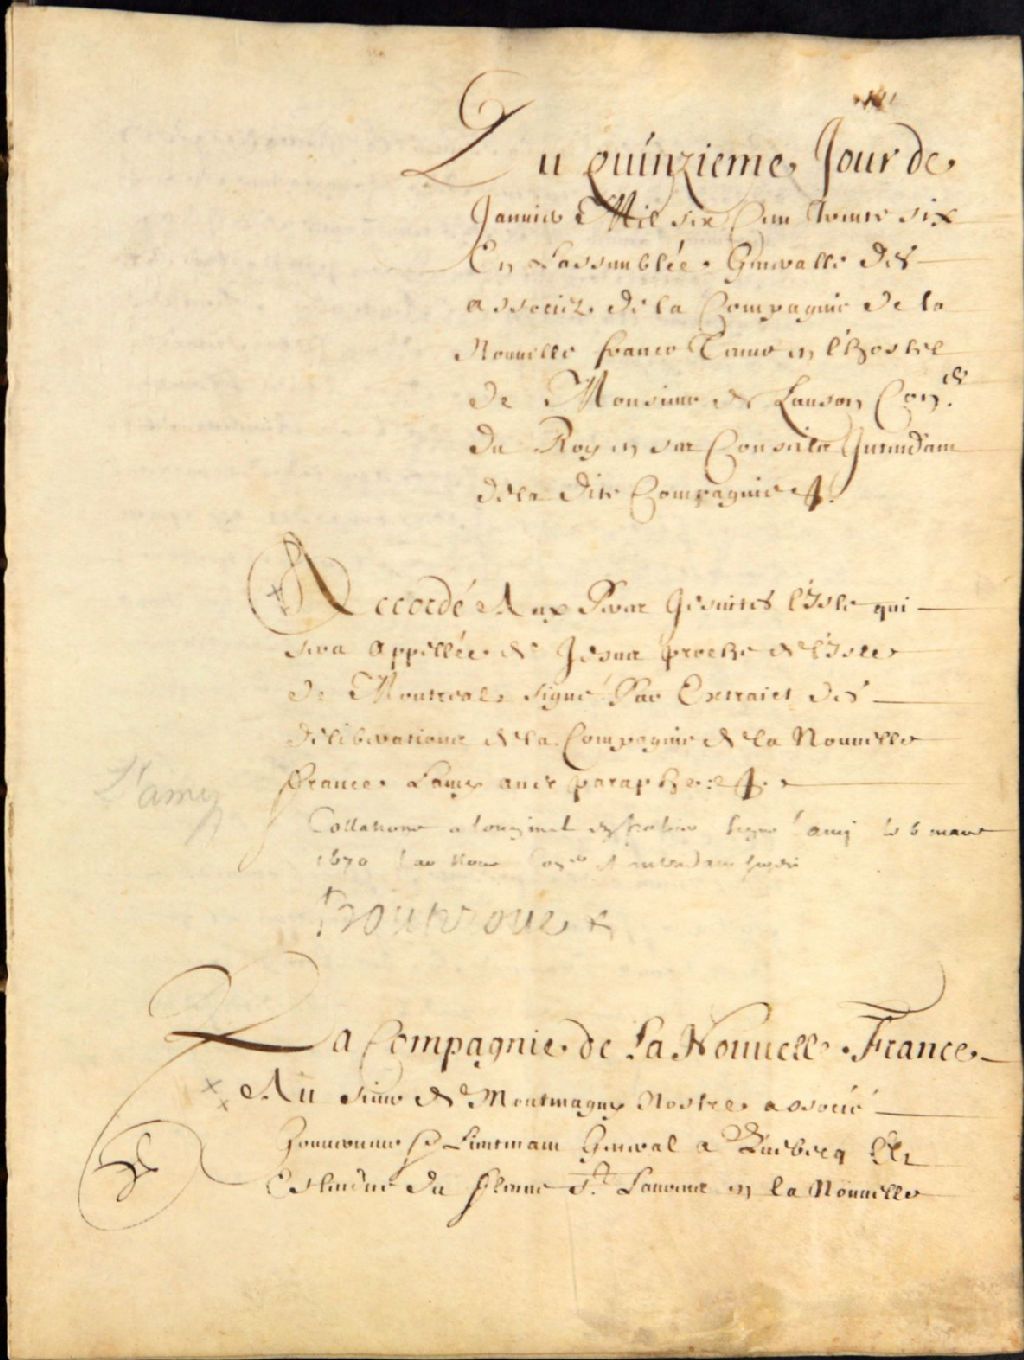 Du quinzieme Jour de
Januier Mil six Cens trente six
En L'assemblée Generalle des
associez de la Compagnie de la
Nouuelle france Tenue en l'hostel
de Monsieur de Lauson Con.er
du Roy en ses Conseils Intendant
de la dite Compagnie
Accordé Aux Peres Jesuites l'Isle qui
sera Appellée de Jesus proche de l'Isle
de Montreal signé Par Extraict des
déliberations de la Compagnie de la Nouuelle
france Lamy auec paraphe
L'amy
Collationné a loriginal signé Lamy le 6 mars
1670 Par Nous Con.er
Boutroue
La Compagnie de La Nouuelle France
Au sieur de Montmagny Nostre associé
Gouuerneur & Lieutenant General a Quebecq &
Estendue du fleuue S.t Laurens en la Nouuelle